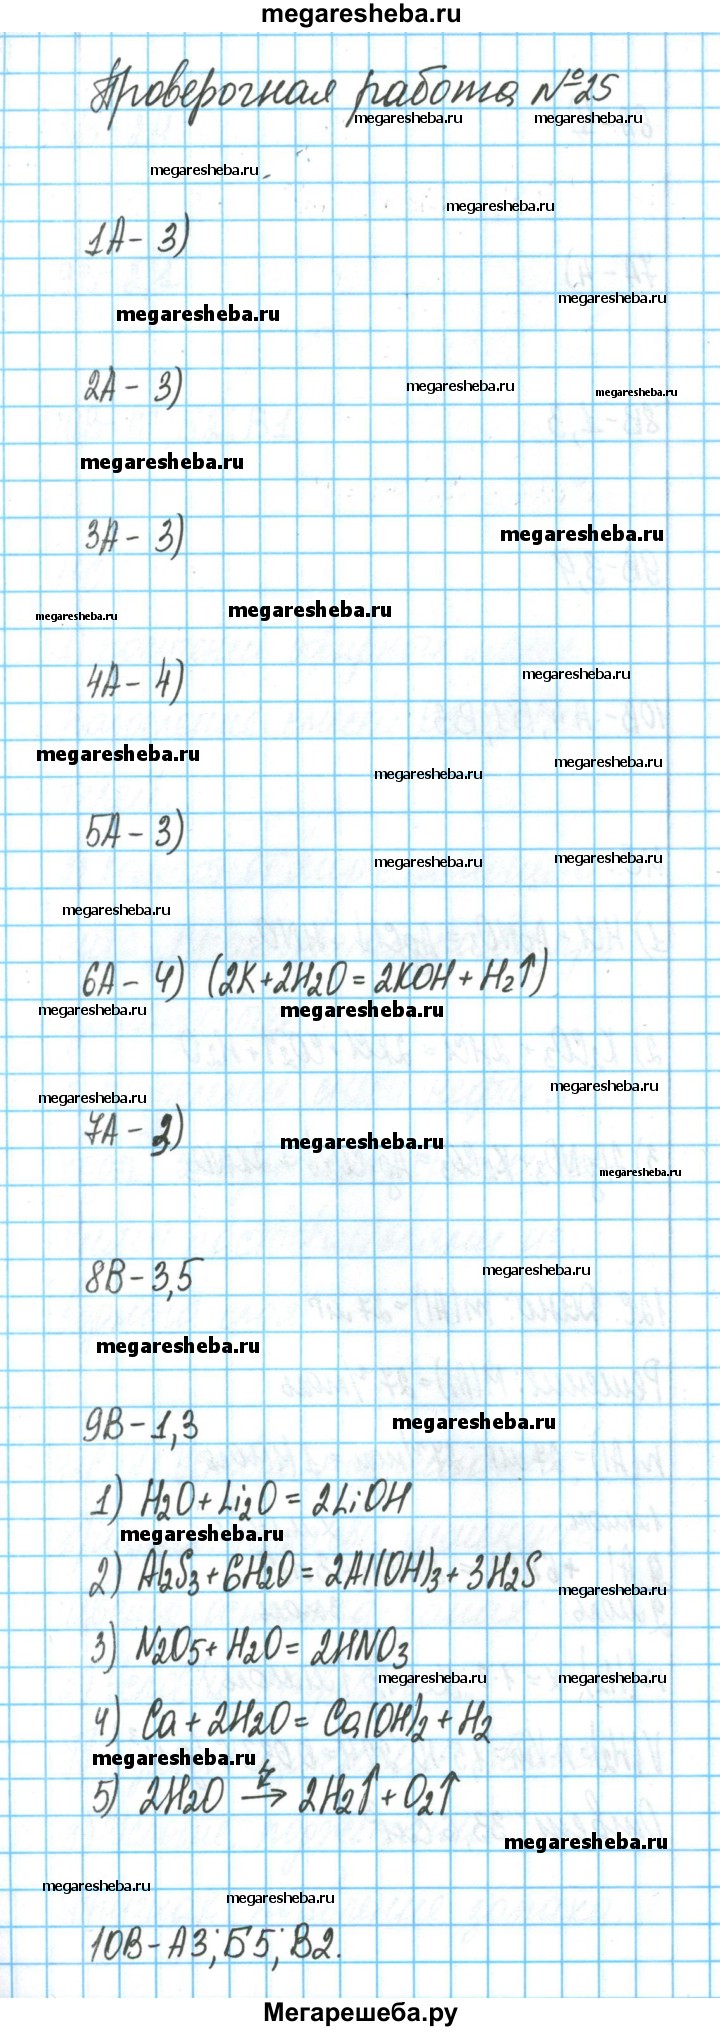 megaresheba.ru
Проверочная работа №25
megaresheba.ru megaresheba.ru
megaresheba.ru
megaresheba.ru
1А - 3)
megaresheba.ru
megaresheba.ru
2А - 3)
megaresheba.ru
megaresheba.ru
megaresheba.ru
3А - 3)
megaresheba.ru
megaresheba.ru
megaresheba.ru
4А - 4)
megaresheba.ru
megaresheba.ru
megaresheba.ru
megaresheba.ru
5А - 3)
megaresheba.ru
megaresheba.ru
megaresheba.ru
6А - 4) (2K + 2H2O = 2KOH + H2↑)
megaresheba.ru
megaresheba.ru
megaresheba.ru
megaresheba.ru
7А - 3)
megaresheba.ru
megaresheba.ru
megaresheba.ru
8В - 3,5
megaresheba.ru
9В - 1,3
megaresheba.ru
1) H2O + Li2O = 2LiOH
megaresheba.ru
2) Al2S3 + 6H2O = 2Al(OH)3 + 3H2S
megaresheba.ru
3) N2O5 + H2O = 2HNO3
megaresheba.ru megaresheba.ru
4) Ca + 2H2O = Ca(OH)2 + H2
megaresheba.ru
5) 2H2O → 2H2↑ + O2↑
megaresheba.ru
megaresheba.ru
megaresheba.ru
10В - А3; Б5; В2.
Мегарешеба.ру